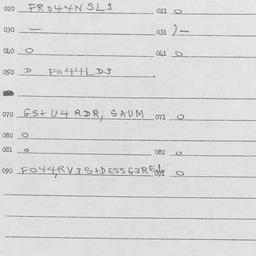 020 FR044NSL3 021 0
030 — 031 )—
040 0 041 0
050 D F044LD3
070 GS+U4RDR, SAUM 071 0
080 0
081 0 082 0
090 F044,RV3S+DE55G3RE 0